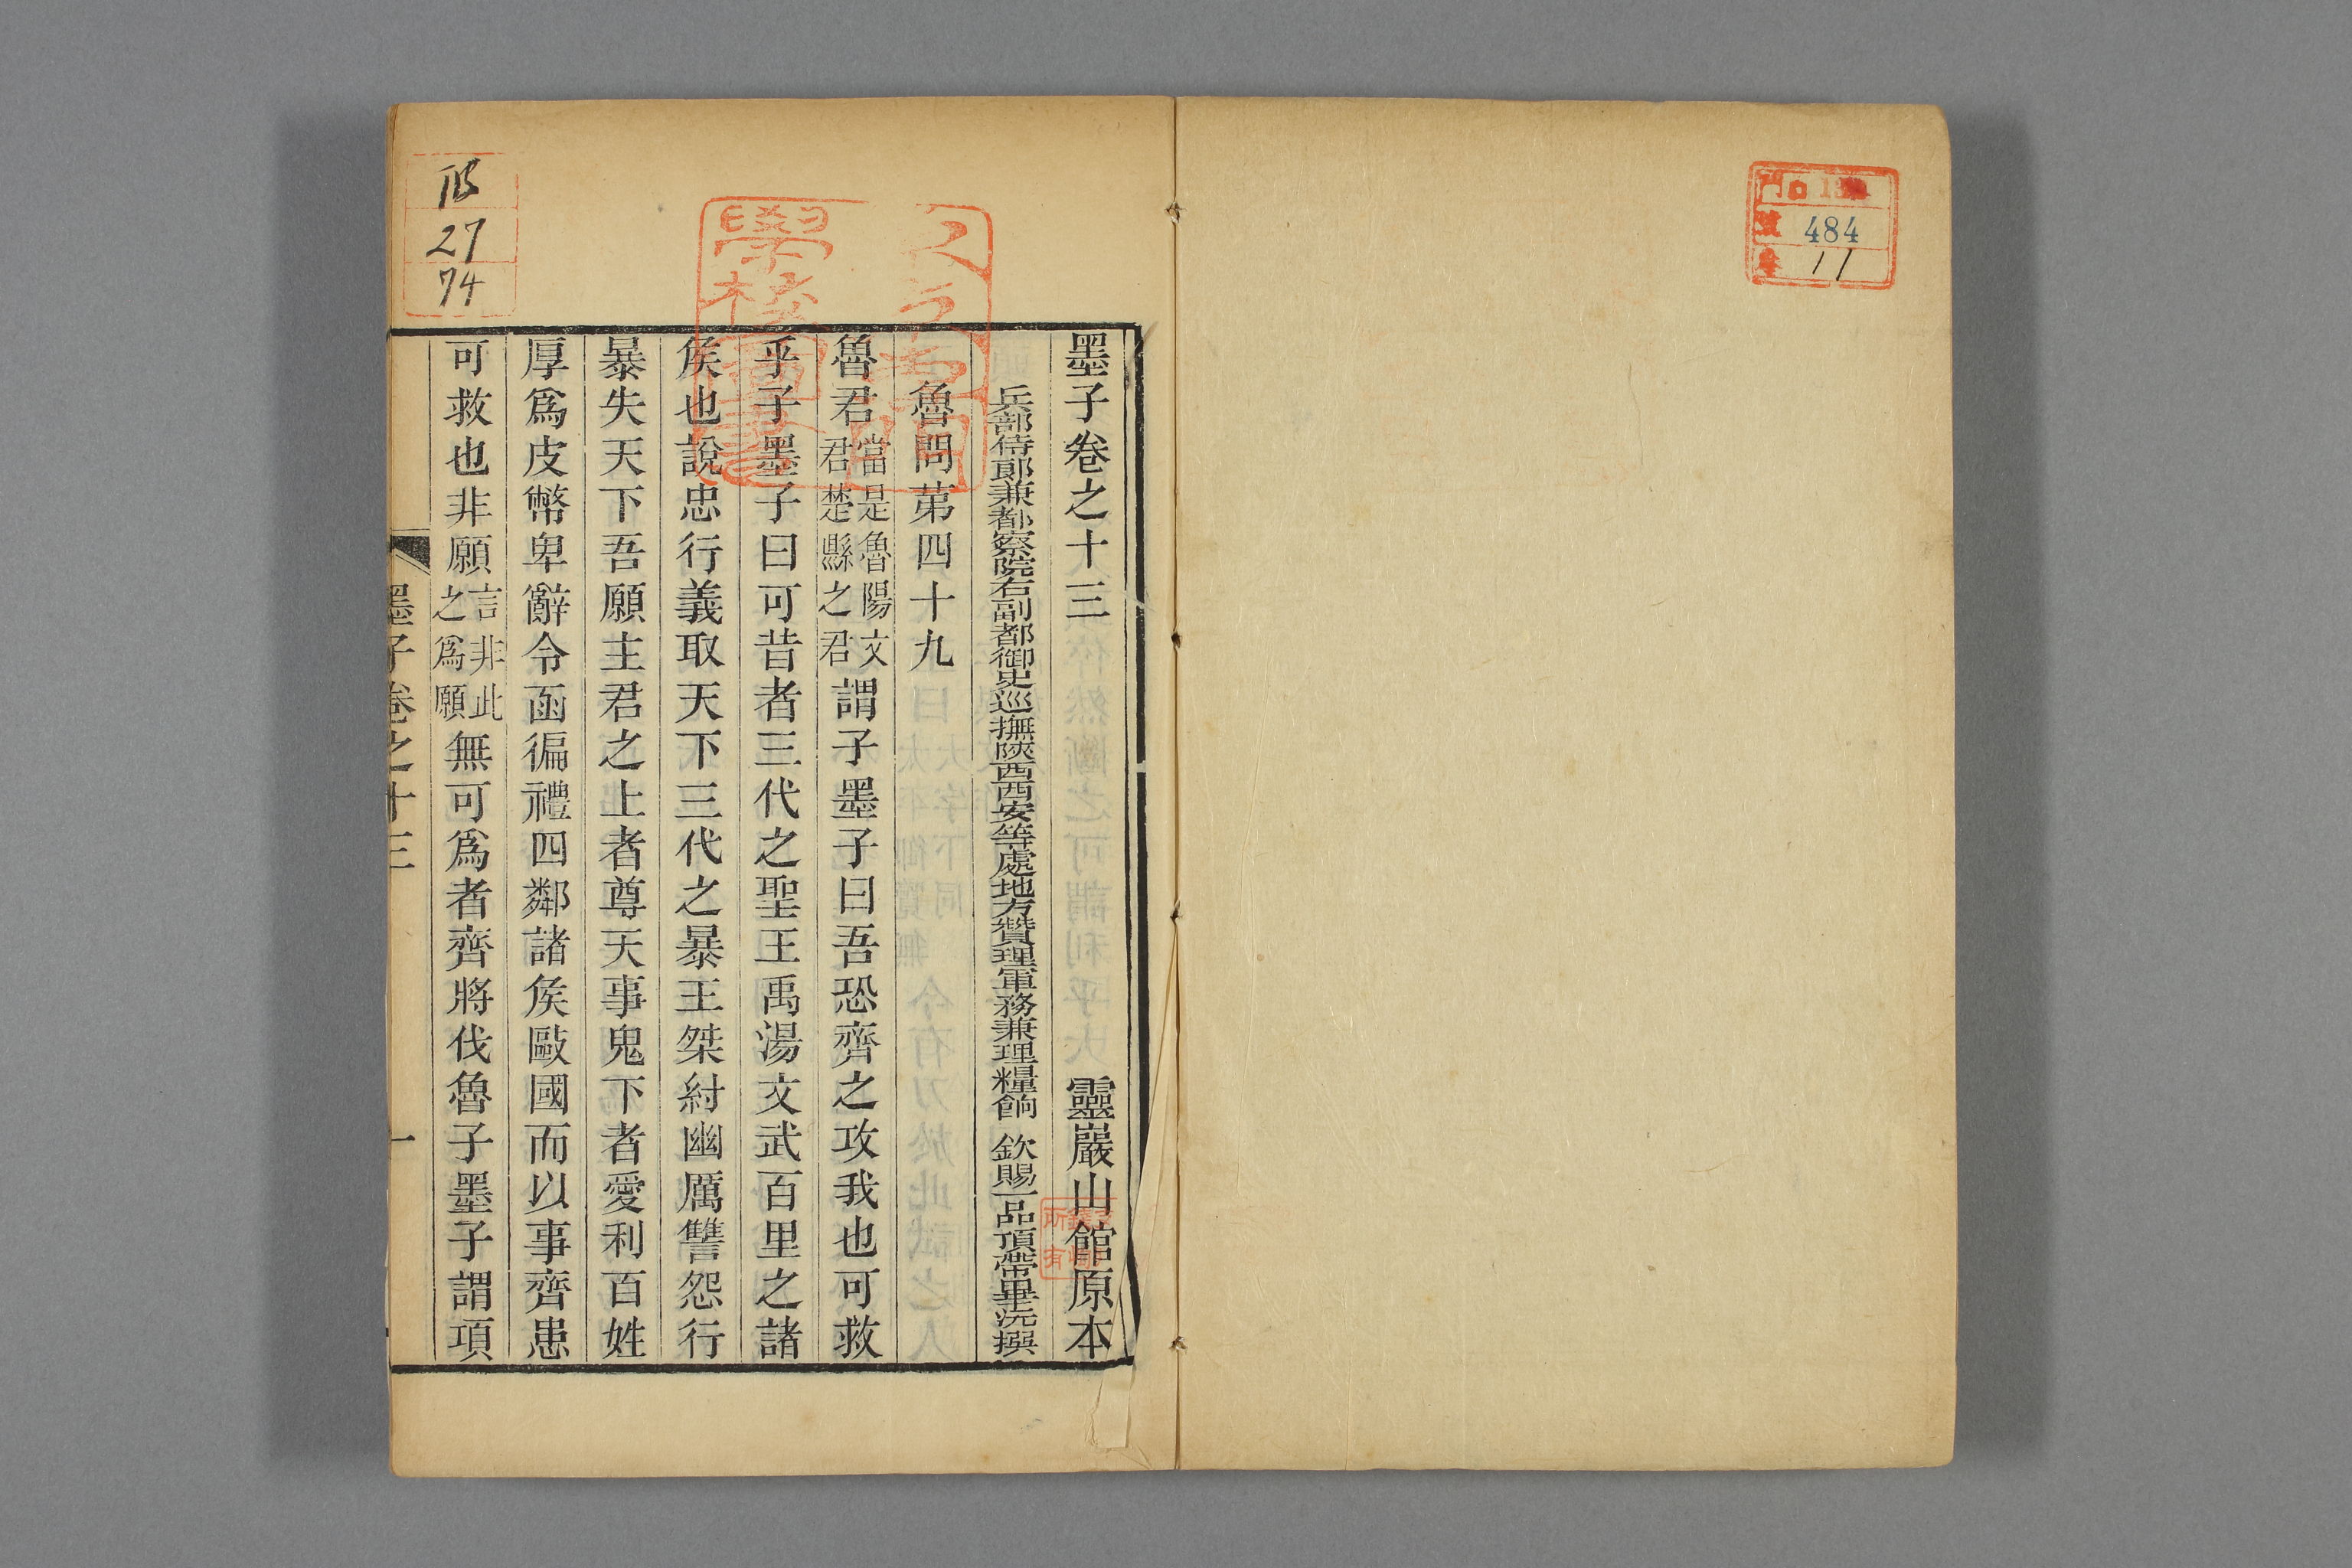 門 ロ
號 484
巻 11
墨子卷之十三 靈巖山館原本
兵部侍郞兼都察院右副都御史巡撫陝西西安等處地方贊理軍務兼理糧餉 欽賜一品頂帶畢沅撰
魯問苐四十九
魯君當是魯陽文君楚縣之君謂子墨子曰吾恐齊之攻我也可救
乎子墨子曰可昔者三代之聖王禹湯文武百里之諸
矦也說忠行義取天下三代之暴王桀紂幽厲讐怨行
暴失天下吾願主君之上者尊天事鬼下者愛利百姓
厚爲皮幣卑辭令亟徧禮四鄰諸矦敺國而以事齊患
可救也非願言非此之爲願無可爲者齊將伐魯子墨子謂項
墨子卷之十三 一
27
74